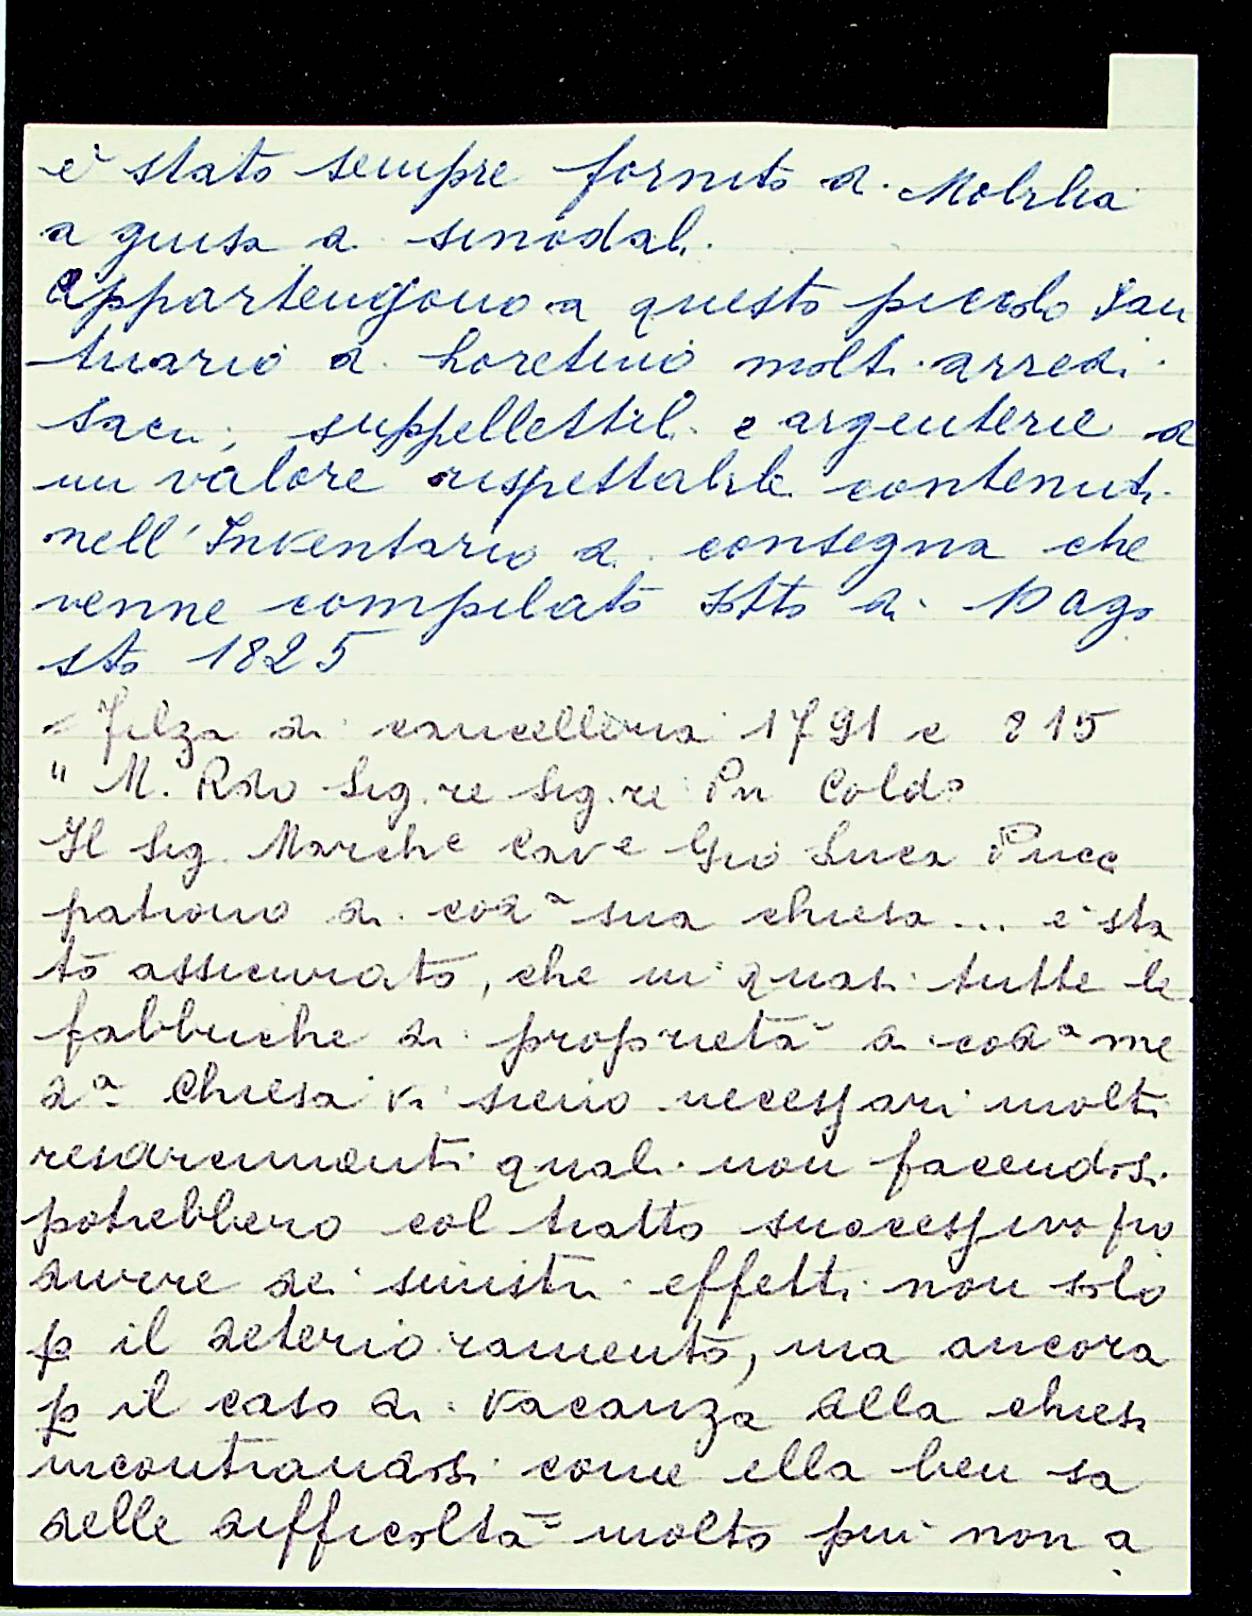 è stato sempre fornito di Mobilia
a guisa di sinodali.
Appartengono a questo piccolo San
tuario di Loretino molti arredi
sacri, suppellettili e argenterie di
un valore rispettabile contenuti
nell'Inventario di consegna che
venne compilato sotto dì 10 ago
sto 1825
Filza di cancelleria 1791 e 815
" M. Rdo Sig.re Sig.re Pn Coldo
Il Sig. Marche Cave Gio Luca Pucc
patrono di coda sua chiesa... è sta
to assicurato, che in quasi tutte le
fabbriche di proprietà di coda me
da Chiesa vi sieno necessari molti
resarcimenti quali non facendosi
potrebbero col tratto successivo pro
durre dei sinistri effetti non solo
p il deterioramento, ma ancora
p il caso di vacanza della chiesa
incontrandosi come ella ben sa
delle difficoltà molto più non a